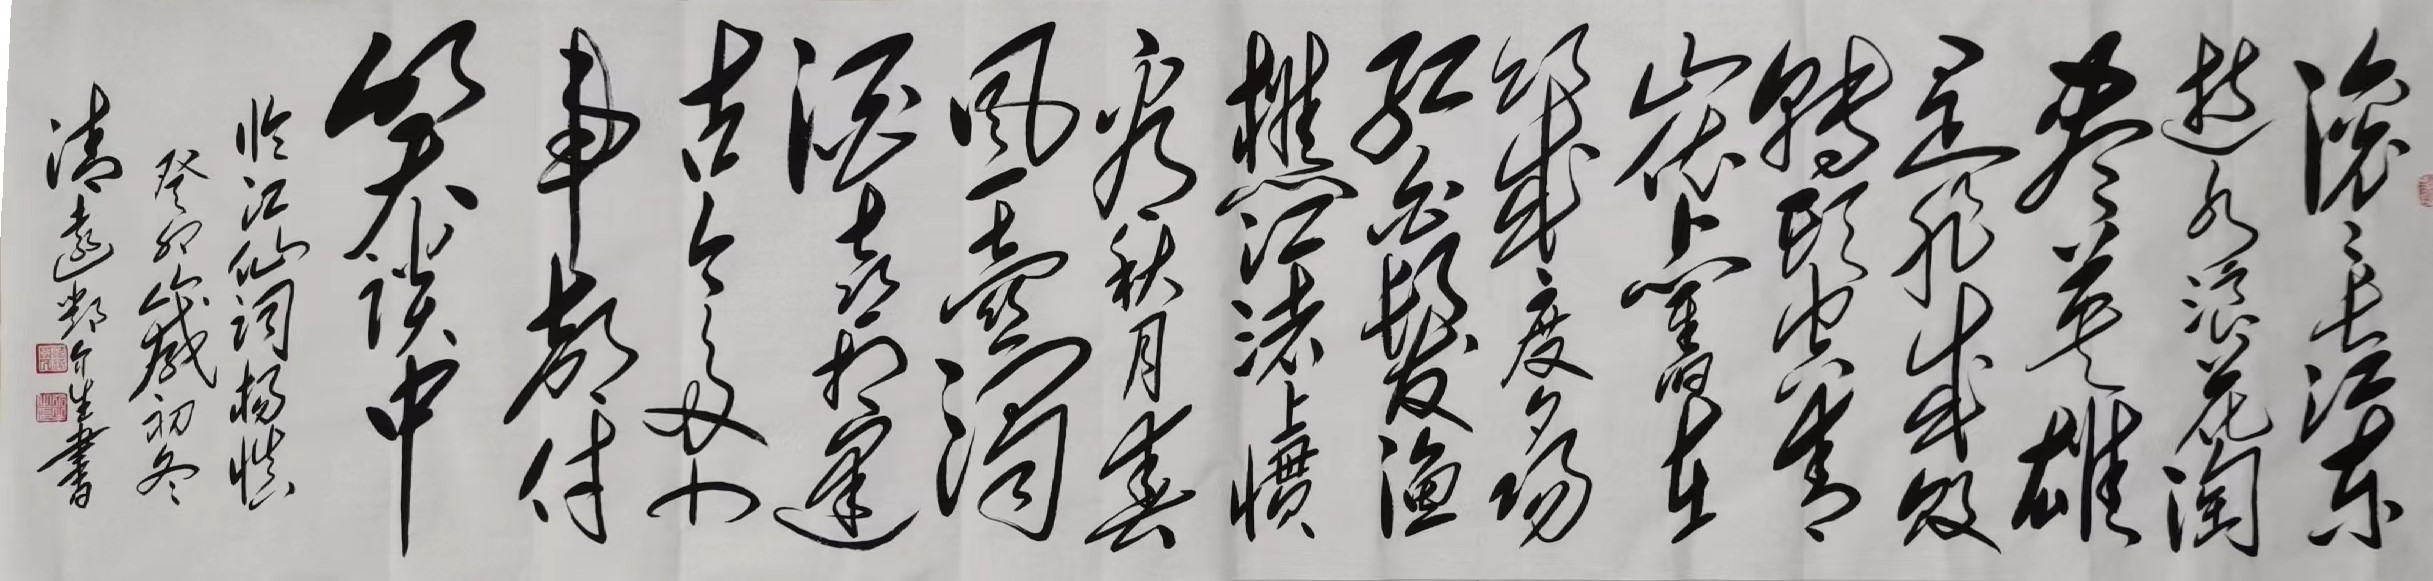 滚〻长江东
逝水浪花淘
尽英雄
是非成败
转头空青
山依舊在
幾度夕阳
红白髮渔
樵江渚上惯
看秋月春
风一壶浊
酒喜相逢
古今多少
事都付
笑谈中
临江仙词杨慎
癸卯岁初冬
清远生書